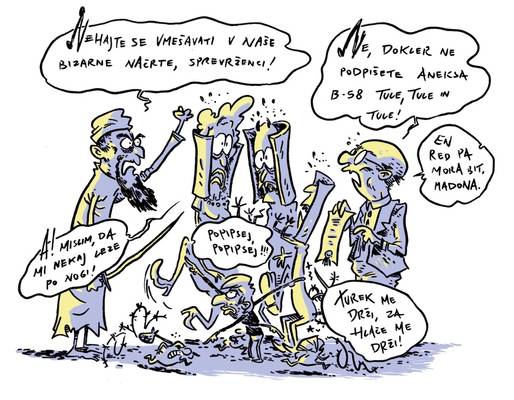 NEHAJTE SE VMEŠAVATI V NAŠE
BIZARNE NAČRTE, SPREVRŽENCI!
NE, DOKLER NE
PODPIŠETE ANEKSA
B-58 TULE, TULE IN
TULE!
EN
RED PA
MORA BIT,
MADONA.
A! MISLIM, DA
MI NEKAJ LEZE
PO NOGI!
POPIPSEJ,
POPIPSEJ!!!
JUREK ME
DRŽI, ZA
HLAČE ME
DRŽI!